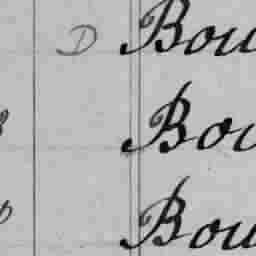 D Bou
Bou
Bou